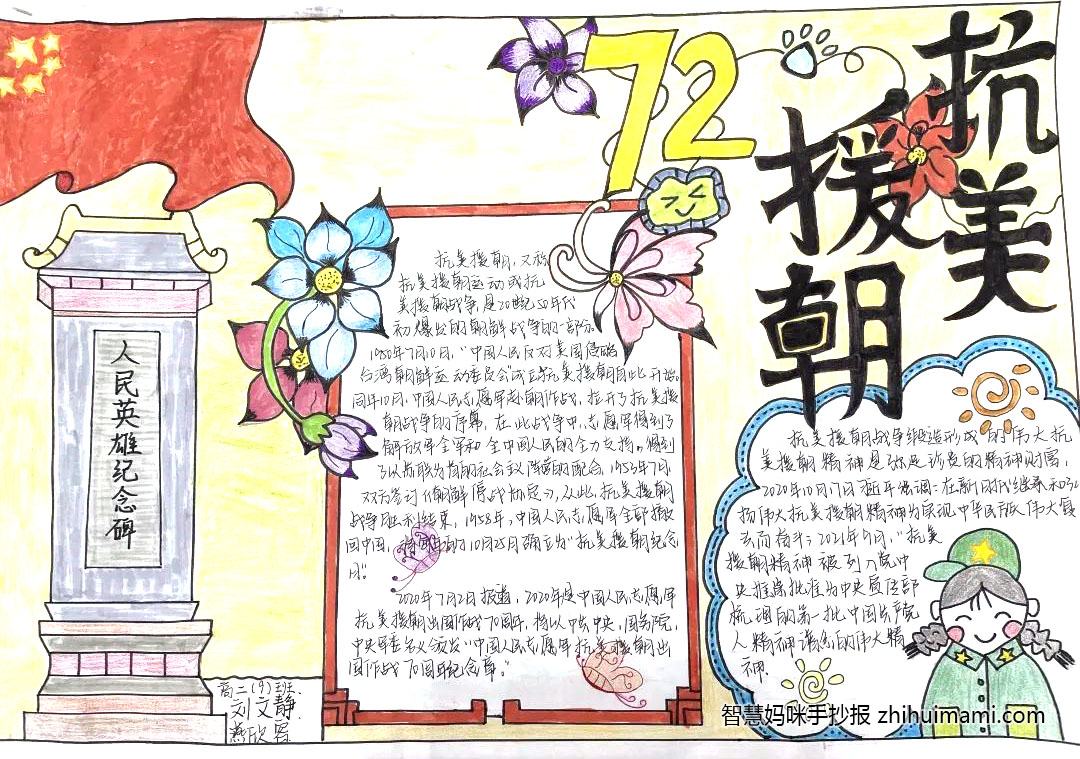 抗美
援朝
72
人民英雄纪念碑
抗美援朝，又称
抗美援朝运动或抗
美援朝战争，是20世纪50年代
初爆发的朝鲜战争的一部分。
1950年7月10日，“中国人民反对美国侵略
台湾朝鲜运动委员会”成立，抗美援朝自此开始。
同年10月，中国人民志愿军赴朝作战，拉开了抗美援
朝战争的序幕，在此战争中，志愿军得到了
解放军全军和全中国人民的全力支持。得到
了以苏联为首的社会主义阵营的配合，1953年7月，
双方签订《朝鲜停战协定》，从此，抗美援朝
战争胜利结束，1958年，中国人民志愿军全部撤
回中国，10月25日确立为“抗美援朝纪念
日”。
2020年7月2日报道，2020年是中国人民志愿军
抗美援朝出国作战70周年，将以中共中央，国务院，
中央军委名义颁发“中国人民志愿军抗美援朝出
国作战70周年纪念章。”
抗美援朝战争锻造形成的伟大抗
美援朝精神是弥足珍贵的精神财富，
2020年10月 强调：在新时代继承和弘
扬伟大抗美援朝精神为实现中华民族伟大复
兴而奋斗；2021年9月，“抗美
援朝精神被列入党中
央批准 中央宣传部
梳理的第一批中国共产党
人精神谱系的伟大精
神.
高二(9)班.
刘文静.
燕欣
智慧妈咪手抄报 zhihuimami.com